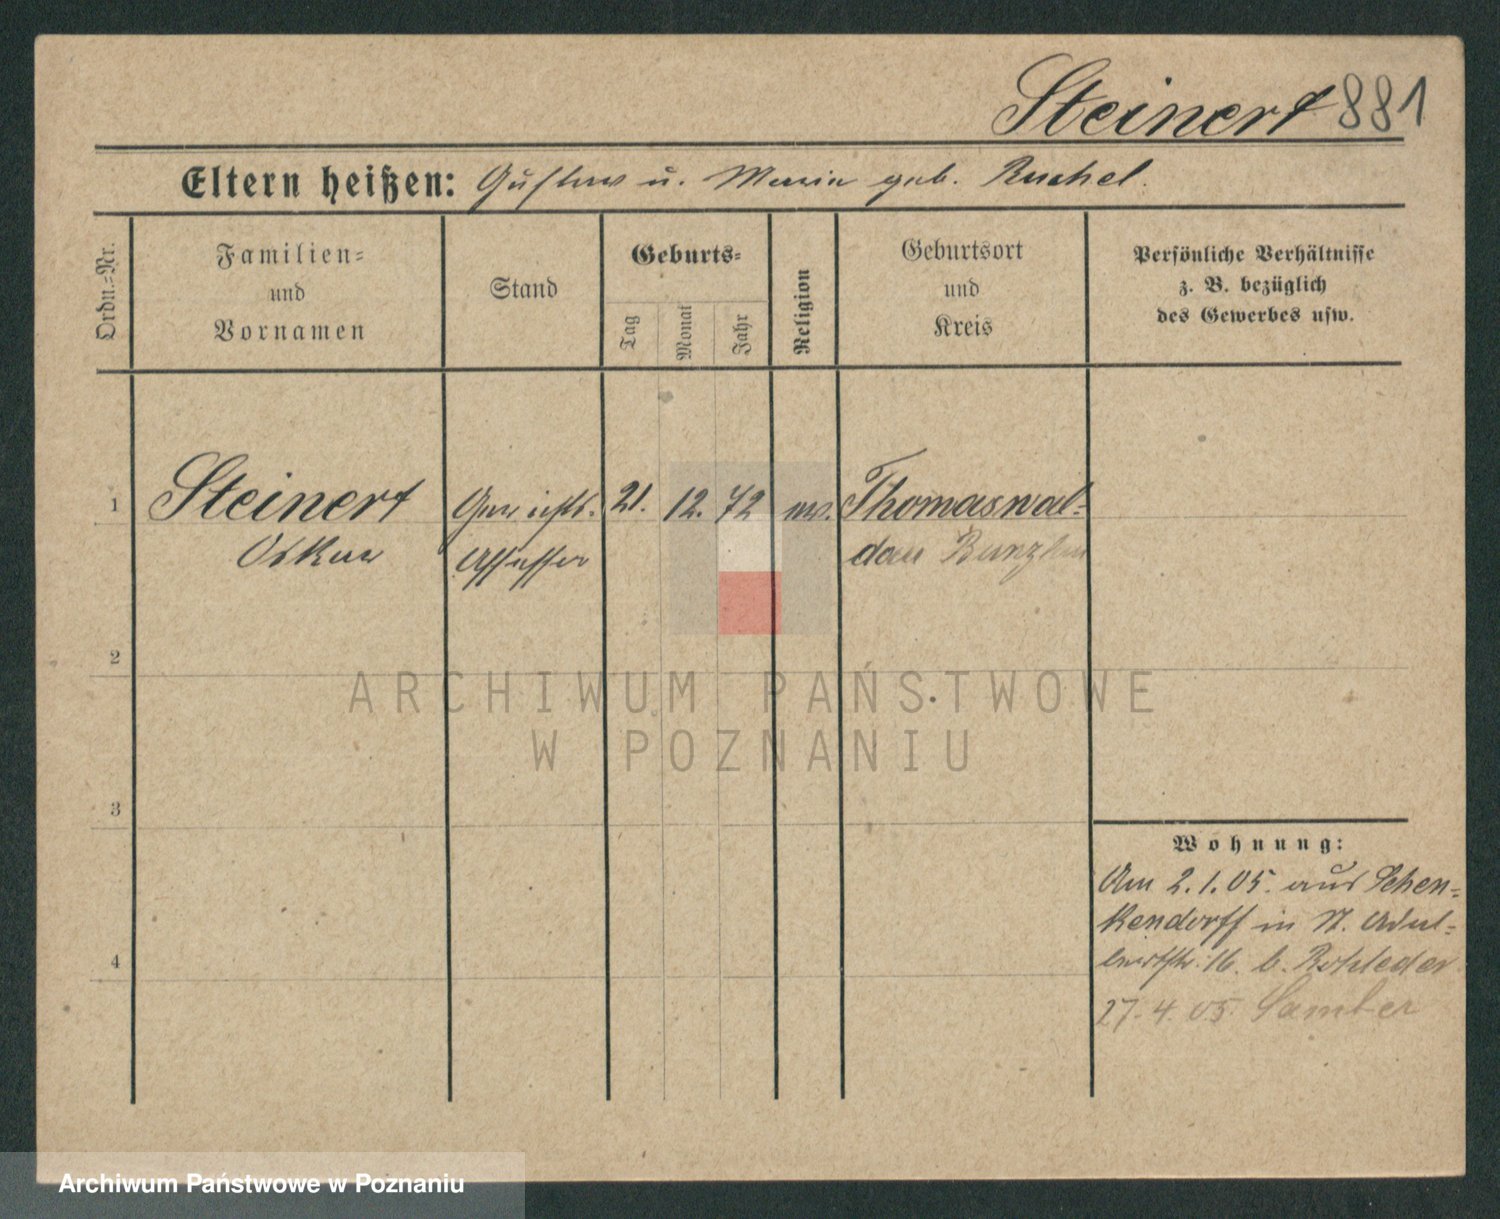 Steinert 881
Eltern heißen: Gustav u. Maria geb. Ruchel.
Ordn.-Nr.
Familien-
und
Vornamen
Stand
Geburts-
Tag
Monat
Jahr
Religion
Geburtsort
und
Kreis
Persönliche Verhältnisse
z. B. bezüglich
des Gewerbes usw.
1 Steinert Gerichts. 21. 12. 72 ev. Thomaswal-
Oskar Assessor dau Bunzlau
2
ARCHIWUM PAŃSTWOWE
W POZNANIU
3
Wohnung:
Am 2.1.05. aus Schen-
kendorff in St. Adal-
4
bertstr. 16. b. Rohleder
27.4.05 Samter
Archiwum Państwowe w Poznaniu